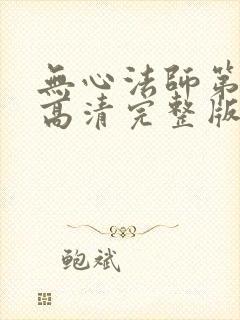 無心法師第
高清完整版
鲍斌